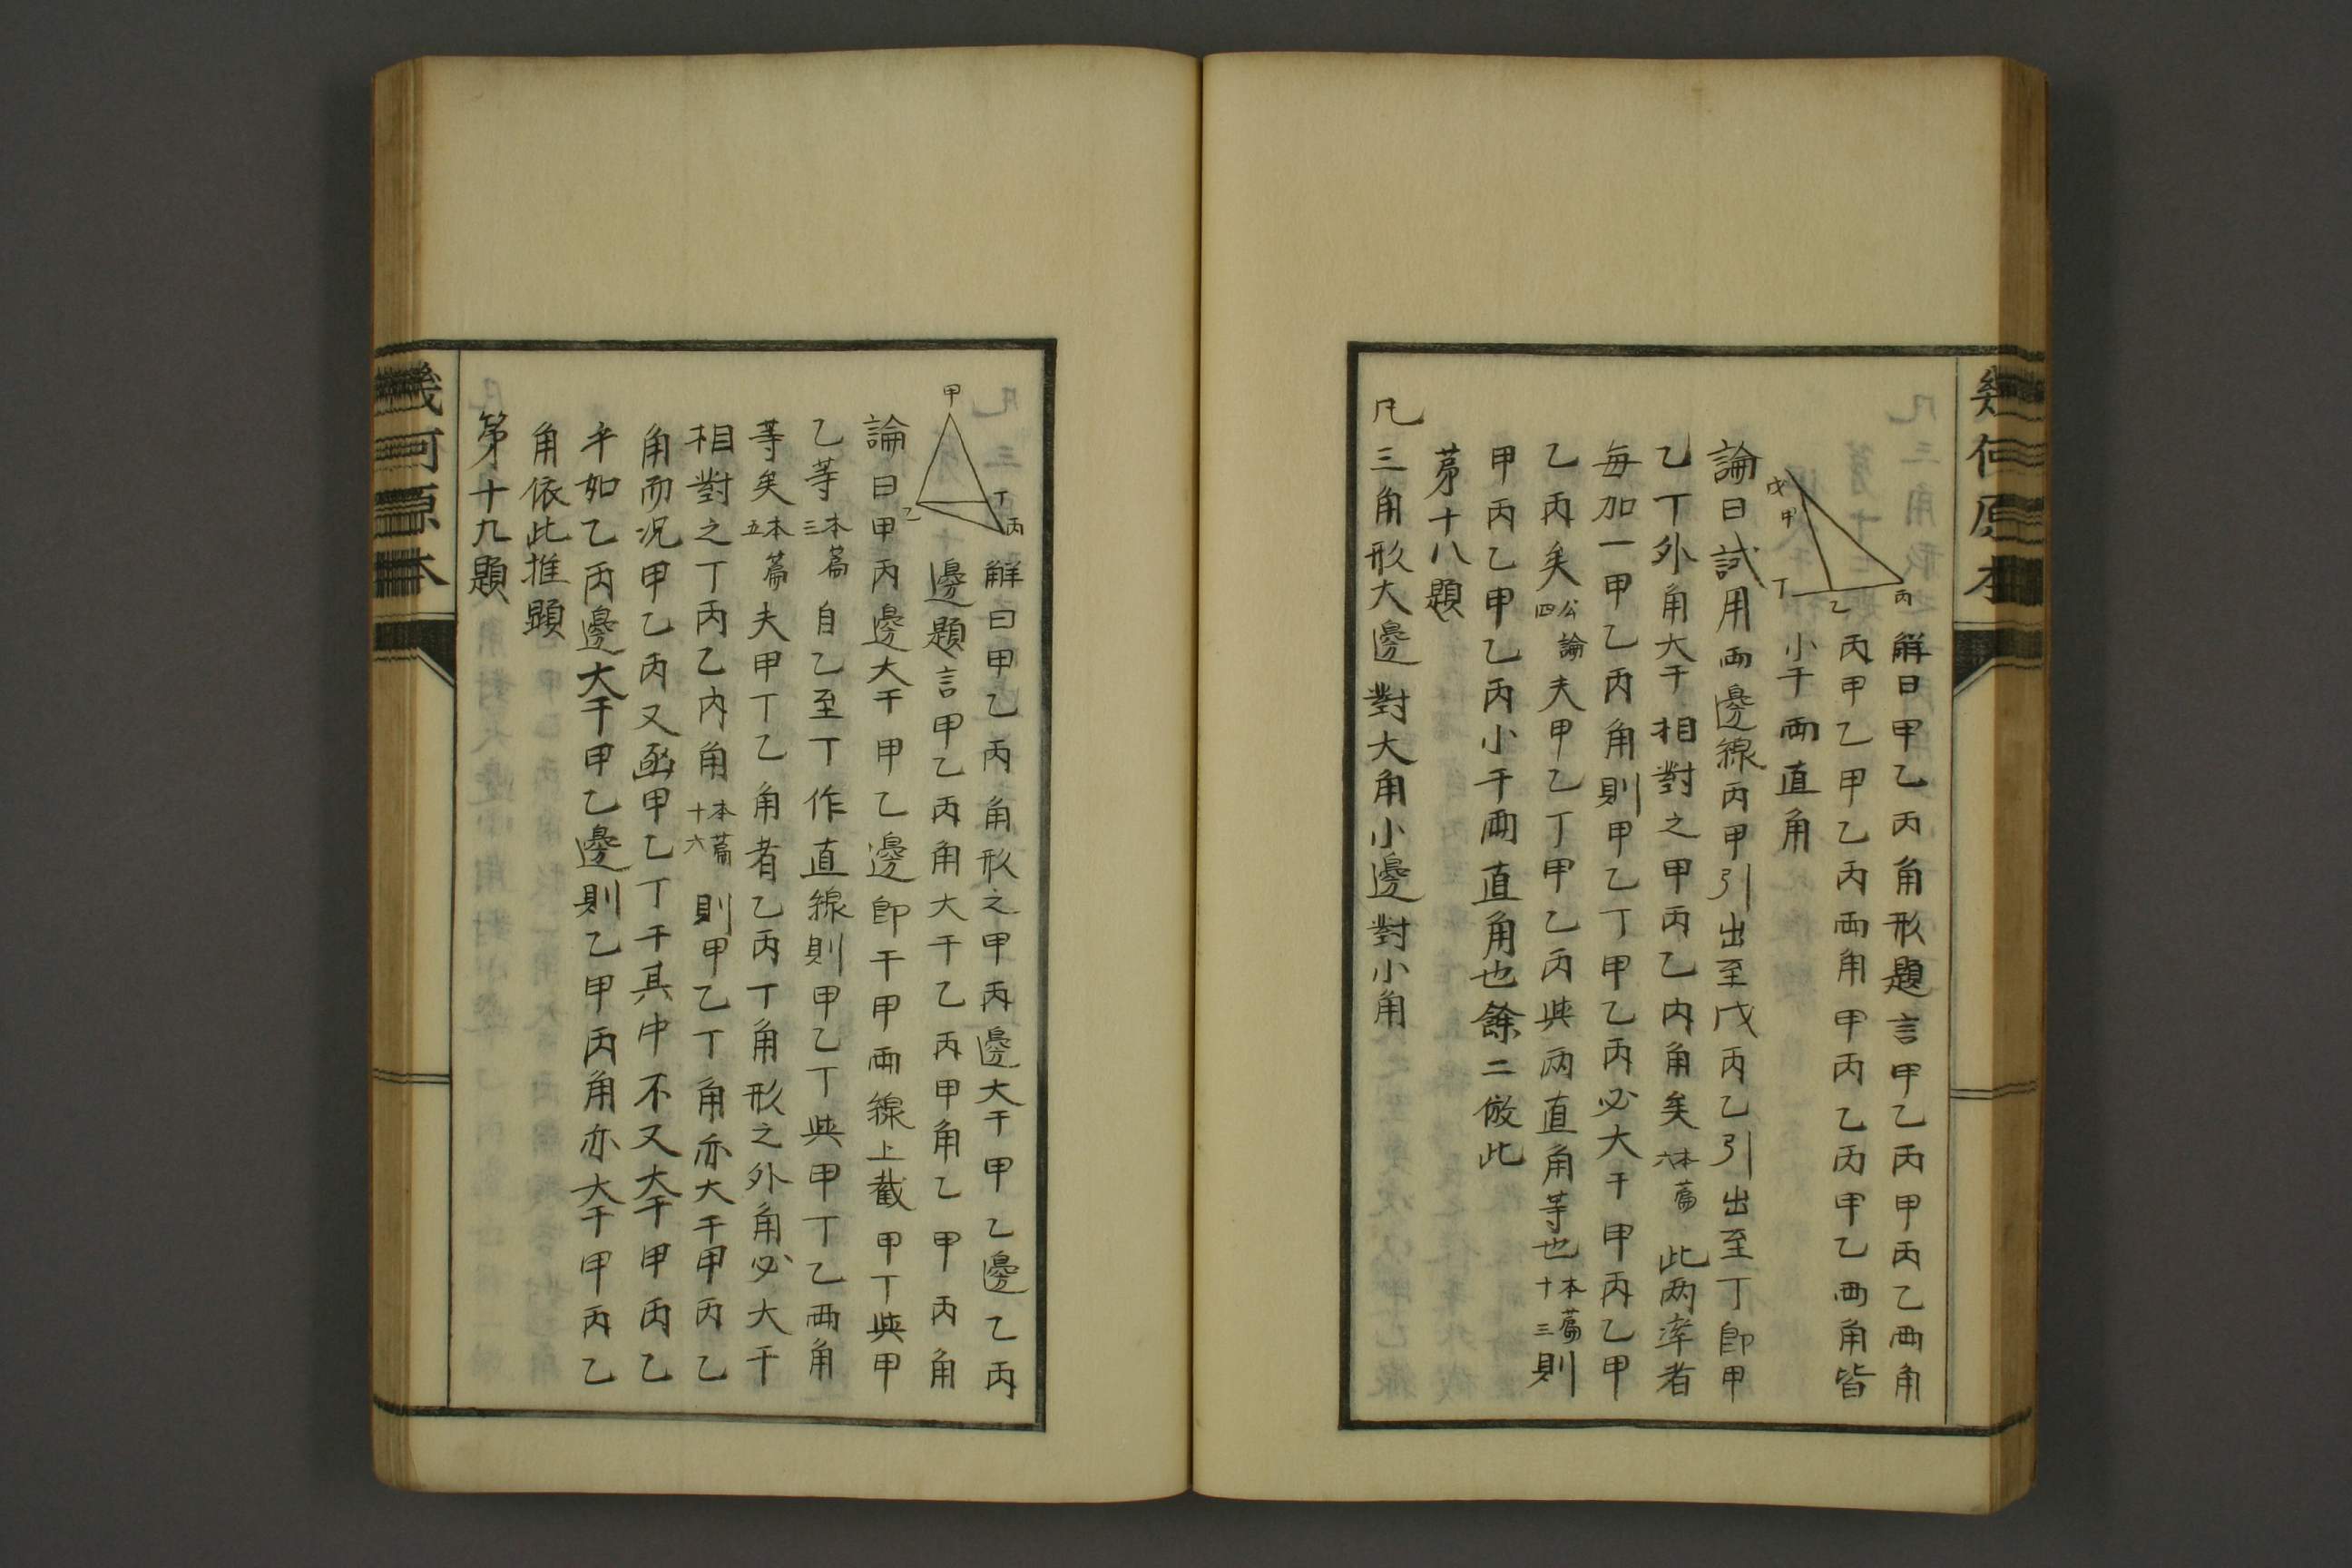 幾何原本
戊
甲
丁
乙
丙
解曰甲乙丙角形題言甲乙丙甲丙乙兩角
丙甲乙甲乙丙兩角甲丙乙丙甲乙兩角皆
小于兩直角
論曰試用兩邊線丙甲引出至戊丙乙引出至丁卽甲
乙丁外角大于相對之甲丙乙內角矣本篇六此两率者
每加一甲乙丙角則甲乙丁甲乙丙必大于甲丙乙甲
乙丙矣公論四夫甲乙丁甲乙丙與两直角等也本篇十三則
甲丙乙甲乙丙小于兩直角也餘二倣此
第十八題
凡三角形大邊對大角小邊對小角
甲
丁
丙
乙
解曰甲乙丙角形之甲丙邊大于甲乙邊乙丙
邊題言甲乙丙角大于乙丙甲角乙甲丙角
論曰甲丙邊大于甲乙邊卽于甲兩線上截甲丁與甲
乙等本篇三自乙至丁作直線則甲乙丁與甲丁乙兩角
等矣本篇五夫甲丁乙角者乙丙丁角形之外角必大于
相對之丁丙乙內角本篇十六則甲乙丁角亦大于甲丙乙
角而况甲乙丙又函甲乙丁于其中不又大于甲丙乙
乎如乙丙邊大于甲乙邊則乙甲丙角亦大于甲丙乙
角依此推顯
第十九題
幾何原本